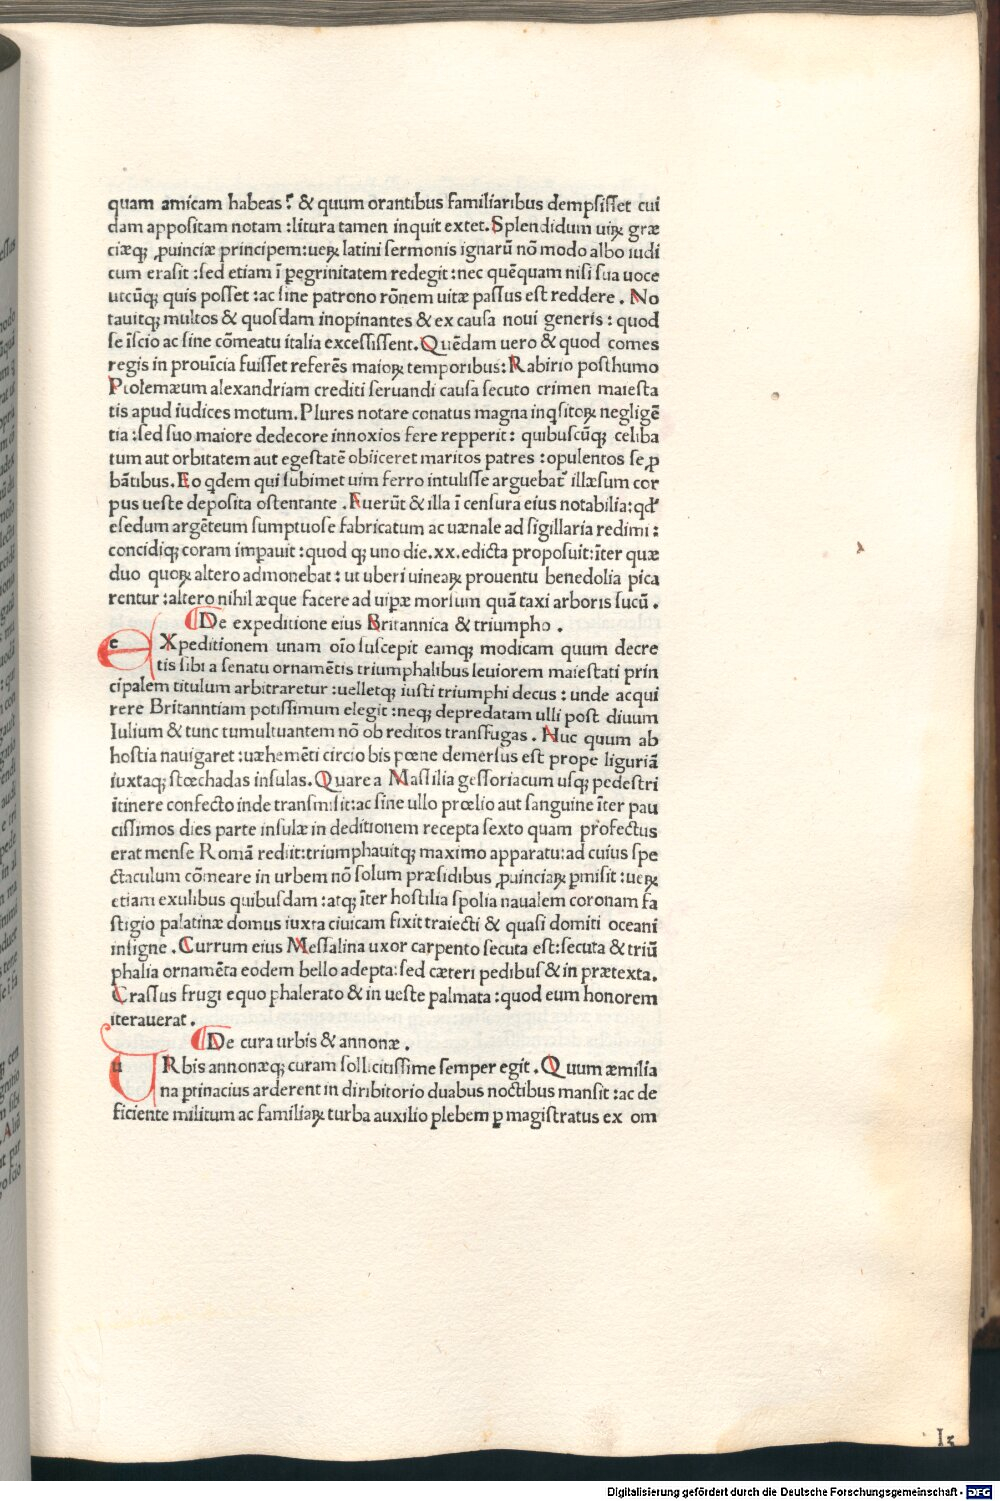 quam amicam habeas? & quum orantibus familiaribus dempsisset cui
dam appositam notam :litura tamen inquit extet.Splendidum uiꝝ græ
ciæqꝫ ꝓuinciæ principem:ueꝝ latini sermonis ignarū nō modo albo iudi
cum erasit :sed etiam ī pegrinitatem redegit :nec quēquam nisi sua uoce
utcūqꝫ quis posset :ac sine patrono rōnem uitæ passus est reddere . No
tauitqꝫ multos & quosdam inopinantes & ex causa noui generis : quod
se īscio ac sine cōmeatu italia excessissent.Quēdam uero & quod comes
regis in prouīcia fuisset referēs maioꝝ temporibus: Rabirio posthumo
Ptolemæum alexandriam crediti seruandi causa secuto crimen maiesta
tis apud iudices motum.Plures notare conatus magna inqsitoꝝ negligē
tia :sed suo maiore dedecore innoxios fere repperit : quibuscūqꝫ celiba
tum aut orbitatem aut egestatē obiiceret maritos patres :opulentos se ꝓ
bātibus.Eo qdem qui subimet uim ferro intulisse arguebat᷑ illæsum cor
pus ueste deposita ostentante .Fuerūt & illa ī censura eius notabilia:qd᷑
esedum argēteum sumptuose fabricatum ac uænale ad sigillaria redimi :
concidiqꝫ coram impauit :quod qꝫ uno die.xx.edicta proposuit:īter quæ
duo quoꝝ altero admonebat : ut uberi uineaꝝ prouentu benedolia pica
rentur :altero nihil æque facere ad uipæ morsum quā taxi arboris sucū .
De expeditione eius Britannica & triumpho .
eXpeditionem unam oīo suscepit eamqꝫ modicam quum decre
tis sibi a senatu ornamētis triumphalibus leuiorem maiestati prin
cipalem titulum arbitraretur :uelletqꝫ iusti triumphi decus : unde acqui
rere Britanntiam potissimum elegit :neqꝫ depredatam ulli post diuum
Iulium & tunc tumultuantem nō ob reditos transfugas . Huc quum ab
hostia nauigaret :uæhemēti circio bis pœne demersus est prope liguriā
iuxtaqꝫ stœchadas insulas.Quare a Massilia gessoriacum usqꝫ pedestri
itinere confecto inde transmisit:ac sine ullo prœlio aut sanguine īter pau
cissimos dies parte insulæ in deditionem recepta sexto quam profectus
erat mense Romā rediit:triumphauitqꝫ maximo apparatu:ad cuius spe
ctaculum cōmeare in urbem nō solum præsidibus ꝓuinciaꝝ ꝑmisit :ueꝝ
etiam exulibus quibusdam :atqꝫ īter hostilia spolia naualem coronam fa
stigio palatinæ domus iuxta ciuicam fixit traiecti & quasi domiti oceani
insigne .Currum eius Messalina uxor carpento secuta est:secuta & triū
phalia ornamēta eodem bello adepta: sed cæteri pedibus & in prætexta.
Crassus frugi equo phalerato & in ueste palmata :quod eum honorem
iterauerat .
De cura urbis & annonæ .
uRbis annonæqꝫ curam sollicitissime semper egit .Quum æmilia
na prinacius arderent in diribitorio duabus noctibus mansit :ac de
ficiente militum ac familiaꝝ turba auxilio plebem ꝑ magistratus ex om
I5
Digitalisierung gefördert durch die Deutsche Forschungsgemeinschaft - DFG